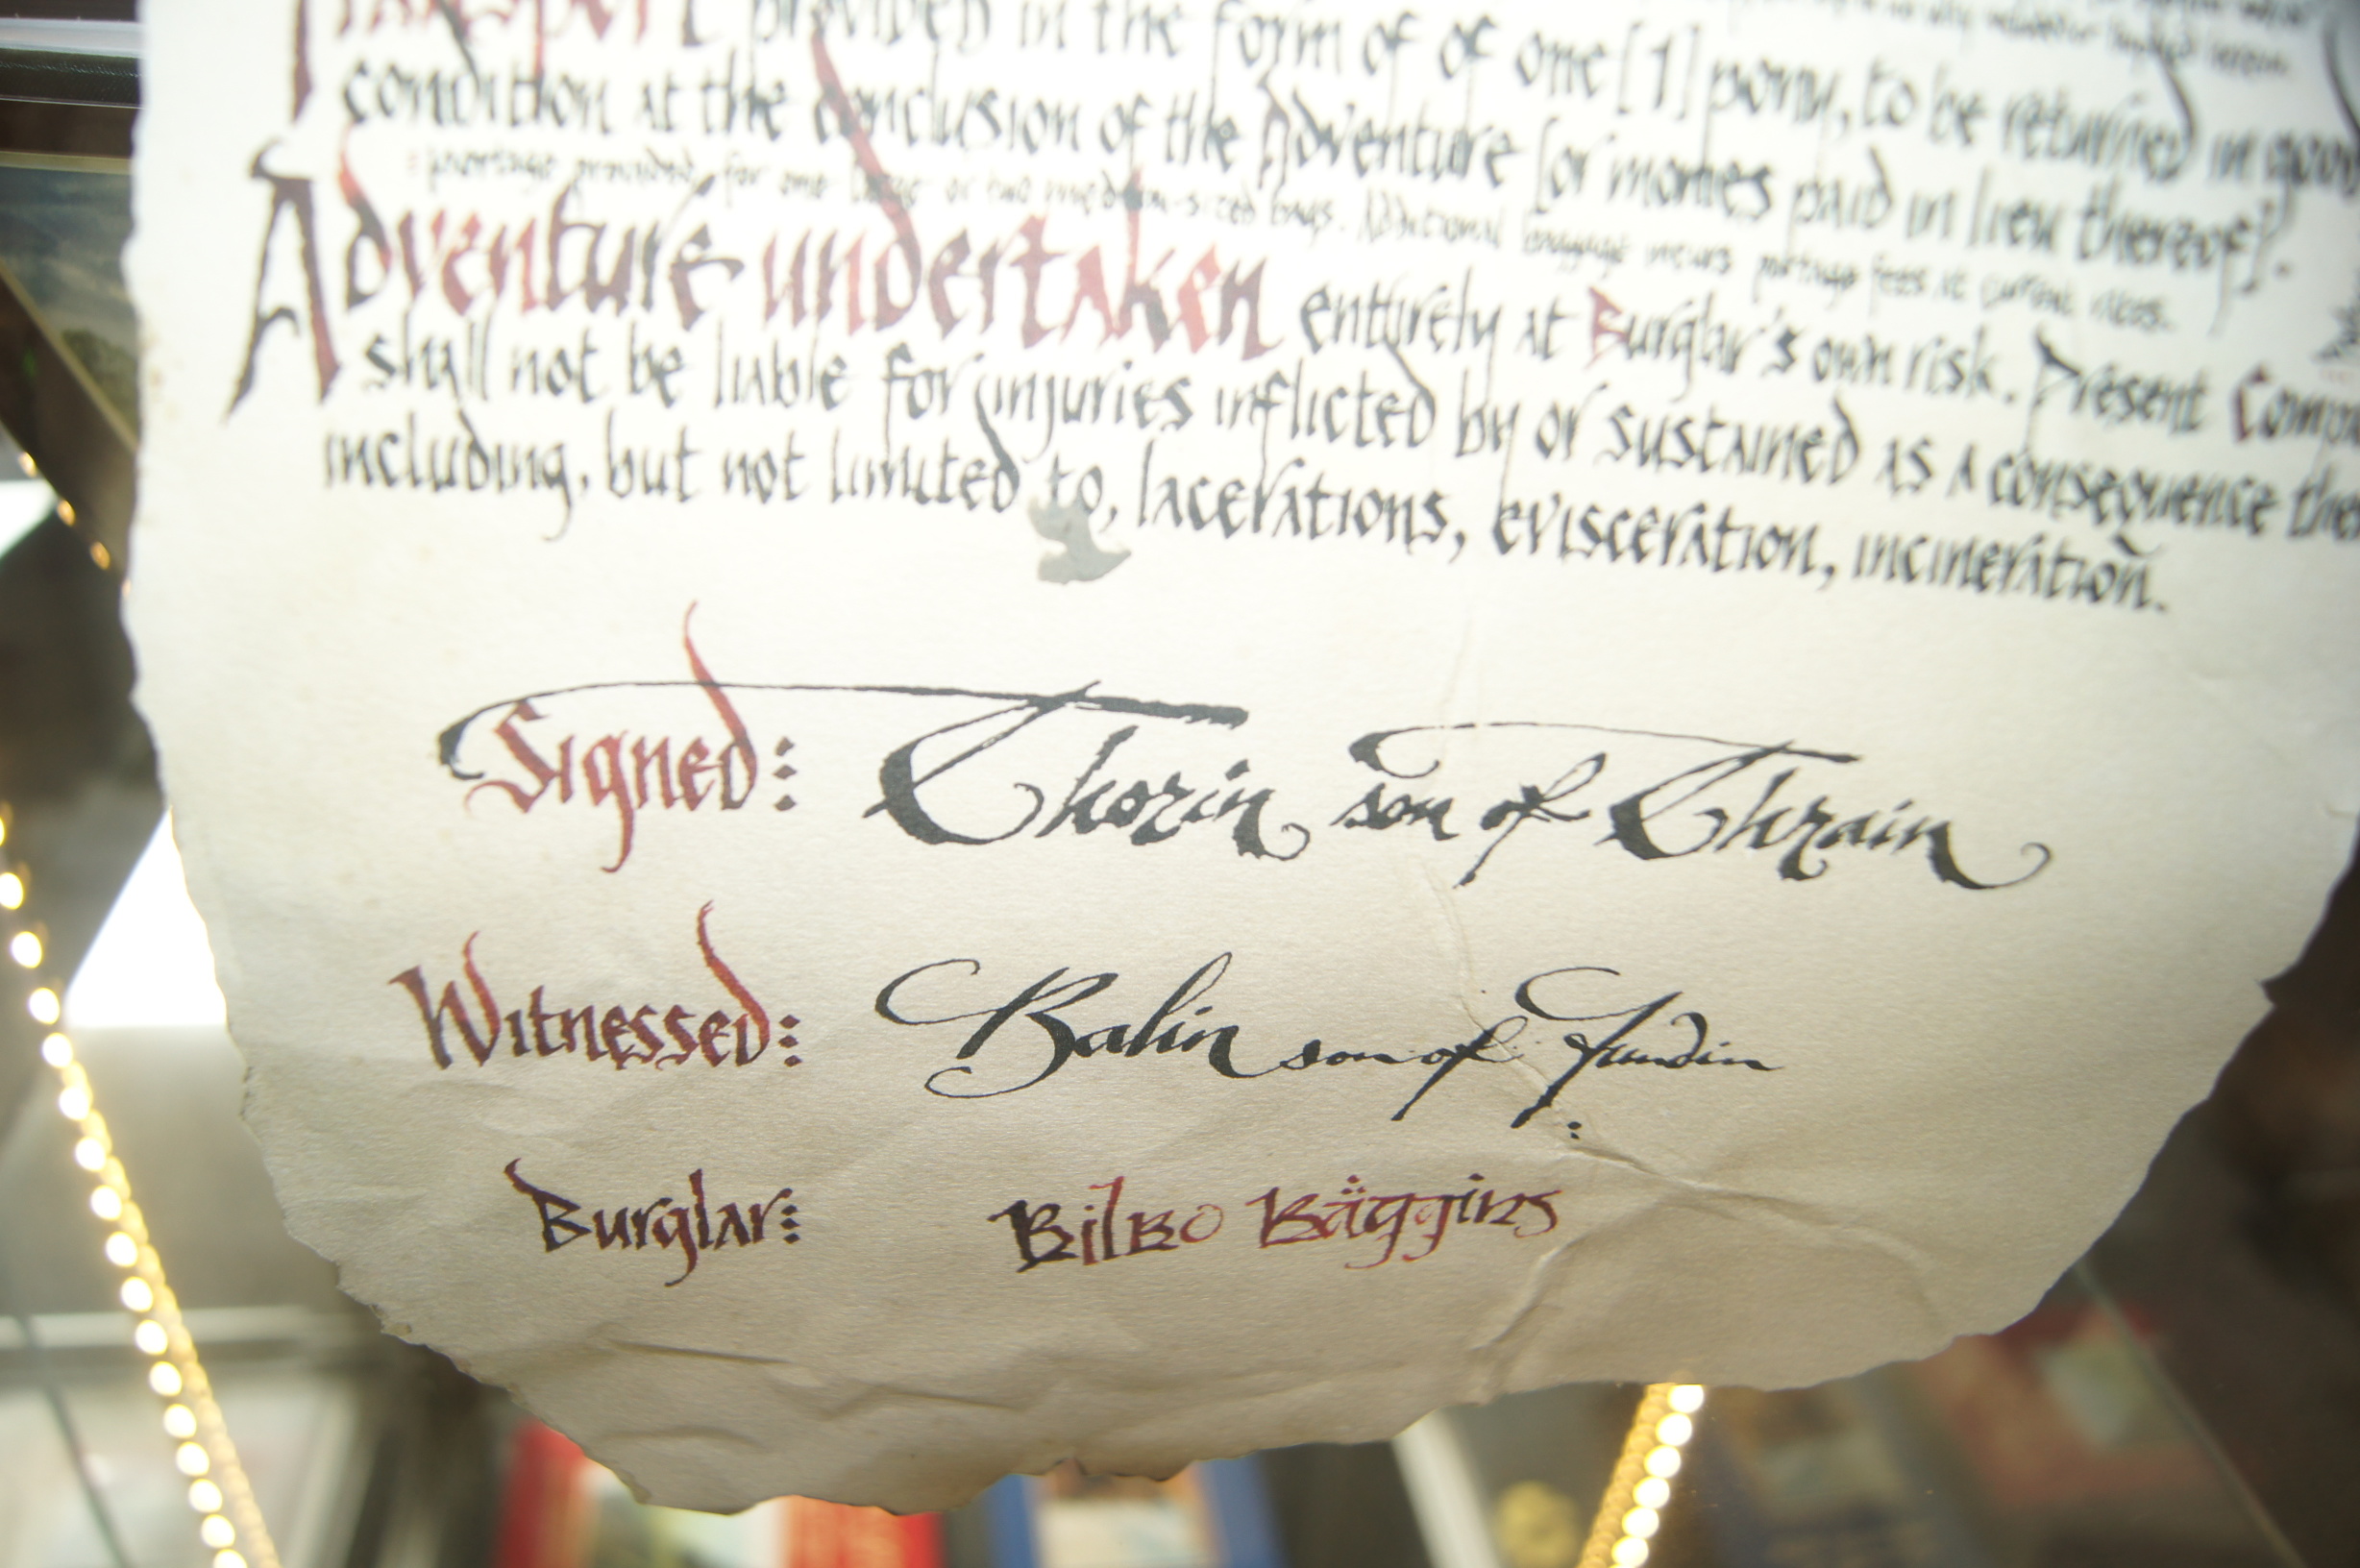 Transport provided in the form of of one [1] pony, to be returned in good
condition at the conclusion of the Adventure [or monies paid in lieu thereof].
portage provided for one large or two medium-sized bags. Additional luggage incurs portage fees at current rates.
Adventure undertaken entirely at Burglar's own risk. Present
shall not be liable for injuries inflicted by or sustained as a consequence
including, but not limited to, lacerations, evisceration, incineration.
Signed: Thorin son of Thrain
Witnessed: Balin son of Fundin
Burglar: Bilbo Bäggins